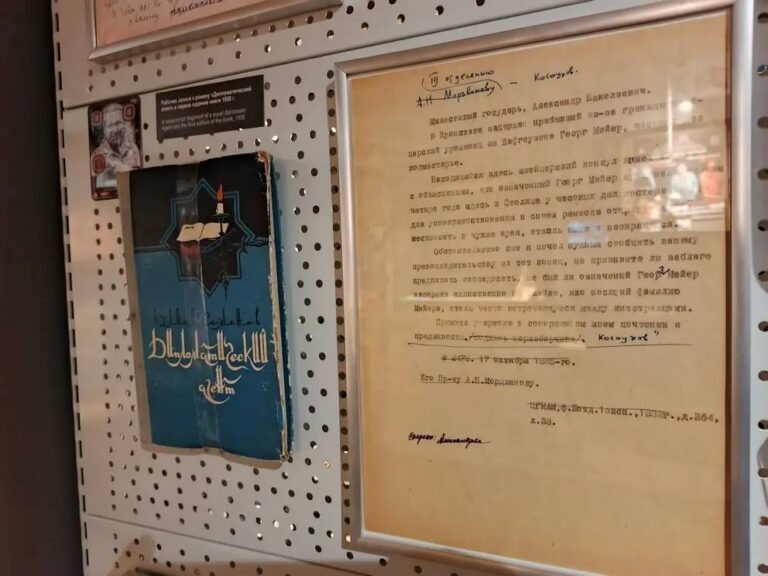 Рабочие записи к роману «Дипломатический
агент» и первое издание книги 1958 г.
A manuscript fragment of a novel Diplomatic
Agent and the first edition of the book, 1958
Дипломатический
агент
III отделению
А.Н. Мордвинову – Косаухов.
Милостивый государь, Александр Николаевич.
В Кронштате задержан прибывший из-за границы
царский уроженец из Шафгаузена Георг Мейер,
подмастерье.
Находящийся здесь швейцарский консул
с объяснением, что означенный Георг Мейер
четыре года здесь в Столице у часовых дел мастера
для усовершенствования в своем ремесле
в чужие края, отколь и возвратился.
Обстоятельство сие я почел нужным сообщить вашему
превосходительству на тот конец, не признаете ли заблаго
предписать исследовать, не был ли означенный Георг Мейер
задержан единственно по ошибке, яко носящий фамилию
Мейера, столь часто встречающуюся между иностранцами.
Примите уверение в совершенном моем почтении и
преданности /подпись неразборчива/
# 2476. 17 октября 1835-го.
Его Пр-ву А.Н.Мордвинову.
ЦГИАМ,ф.Шотд.1эксп.,1832г.,д.364,
л.38.
Сверено: